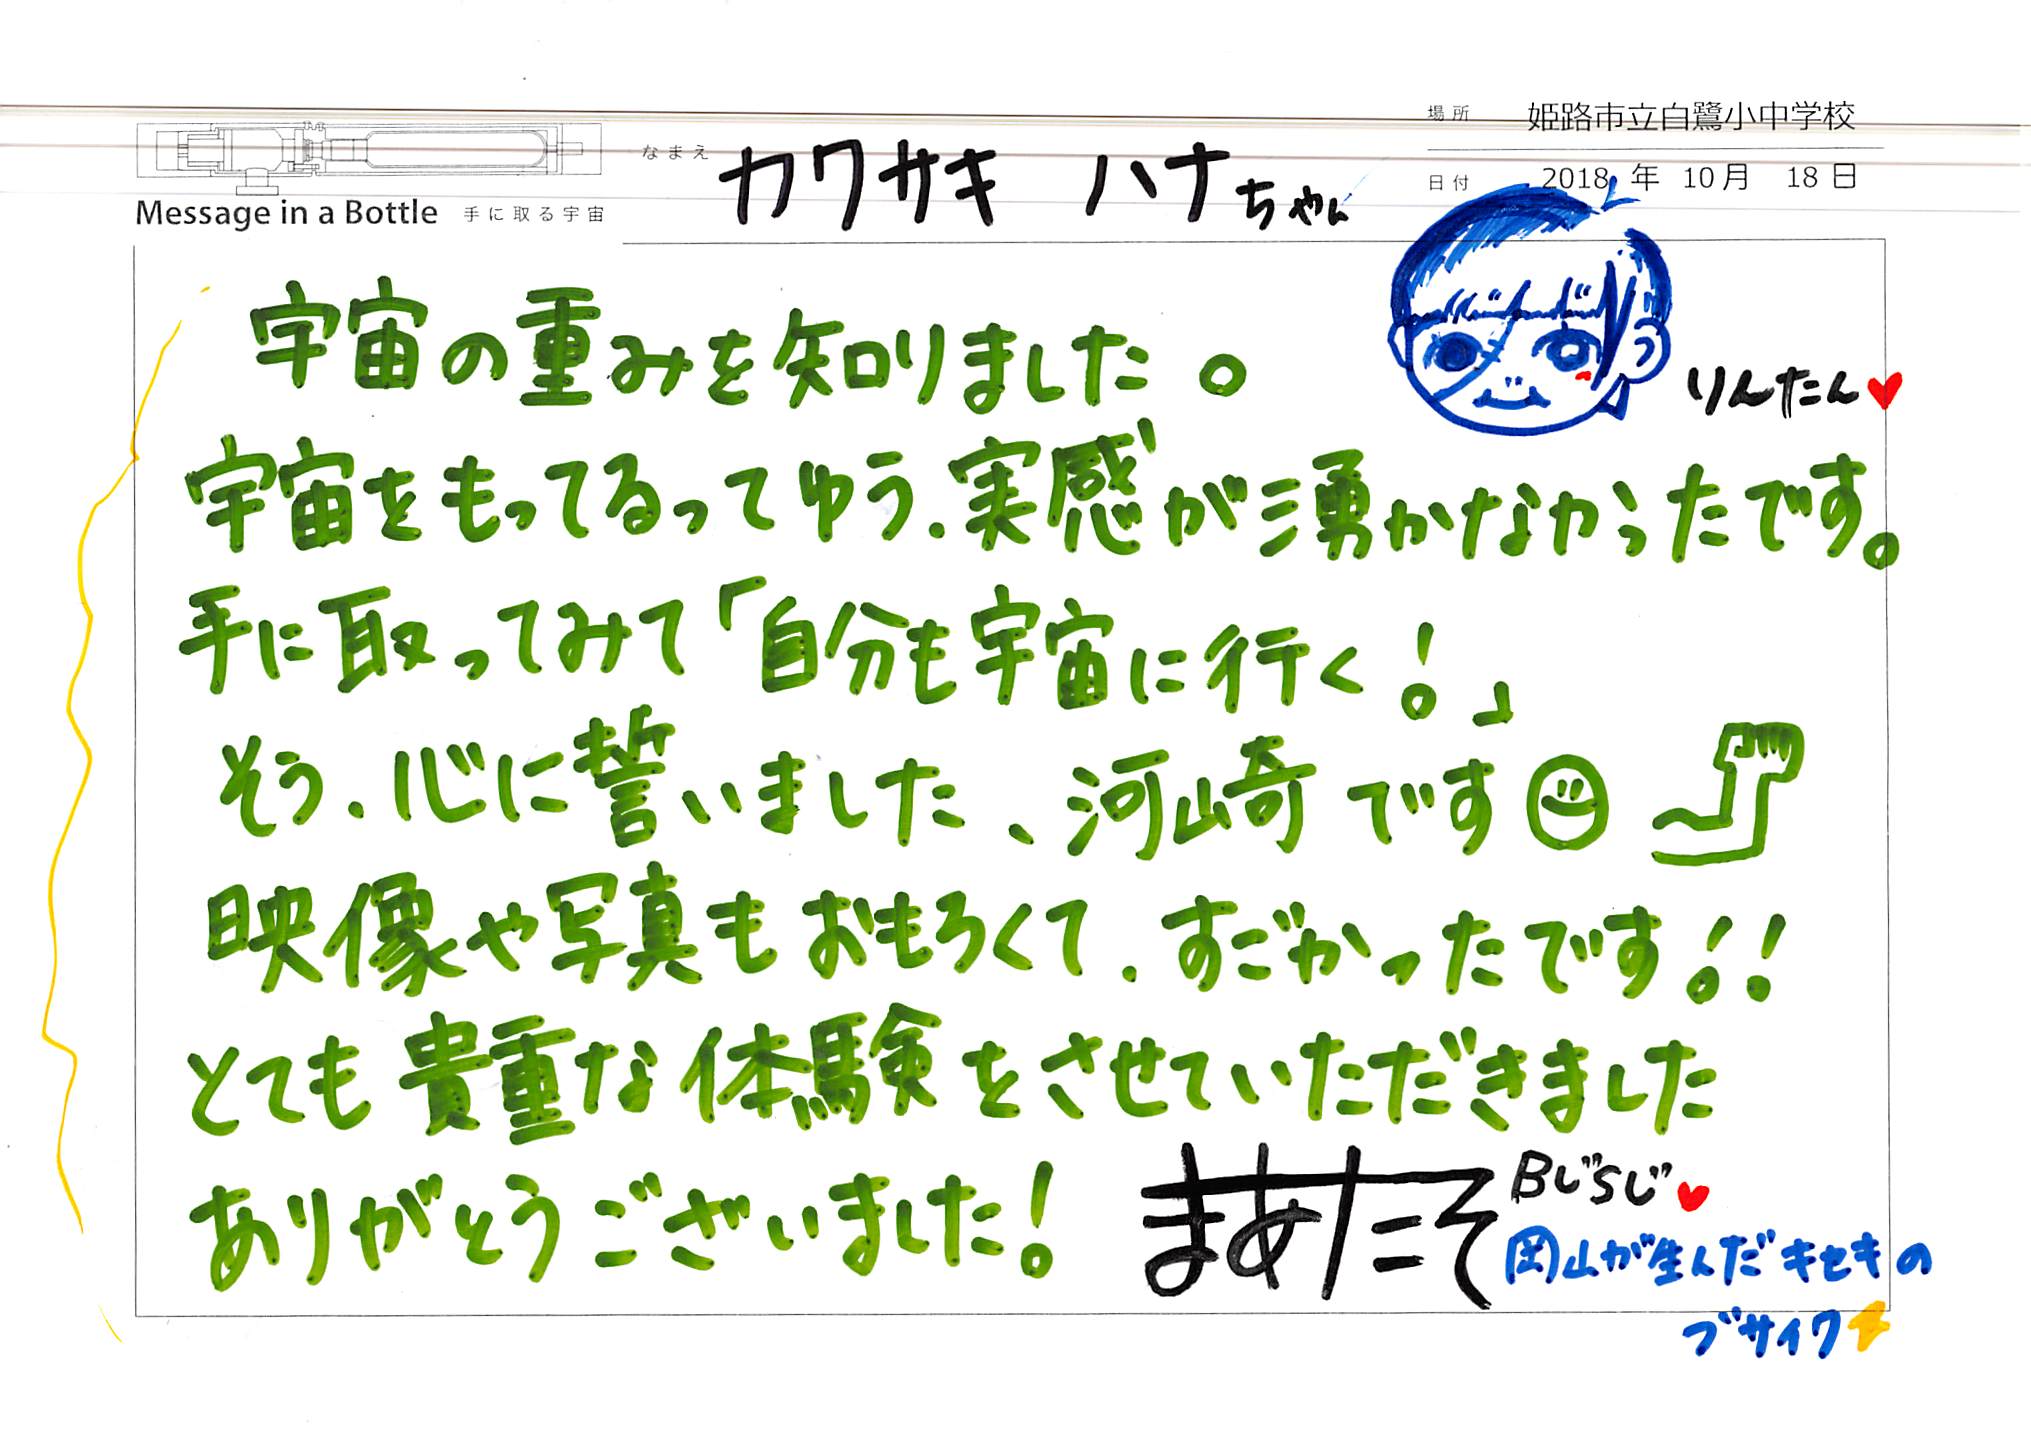 場所 姫路市立白鷺小中学校
なまえ カワサキ ハナちゃん
日付 2018 年 10 月 18 日
Message in a Bottle 手に取る宇宙
宇宙の重みを知りました。
りんたん♥
宇宙をもってるってゆう、実感が湧かなかったです。
手に取ってみて「自分も宇宙に行く!」
そう、心に誓いました、河崎です
映像や写真もおもろくて、すごかったです!!
とても貴重な体験をさせていただきました
ありがとうございました!
まあたそ
BじSじ♥
岡山が生んだキセキの
ブサイク